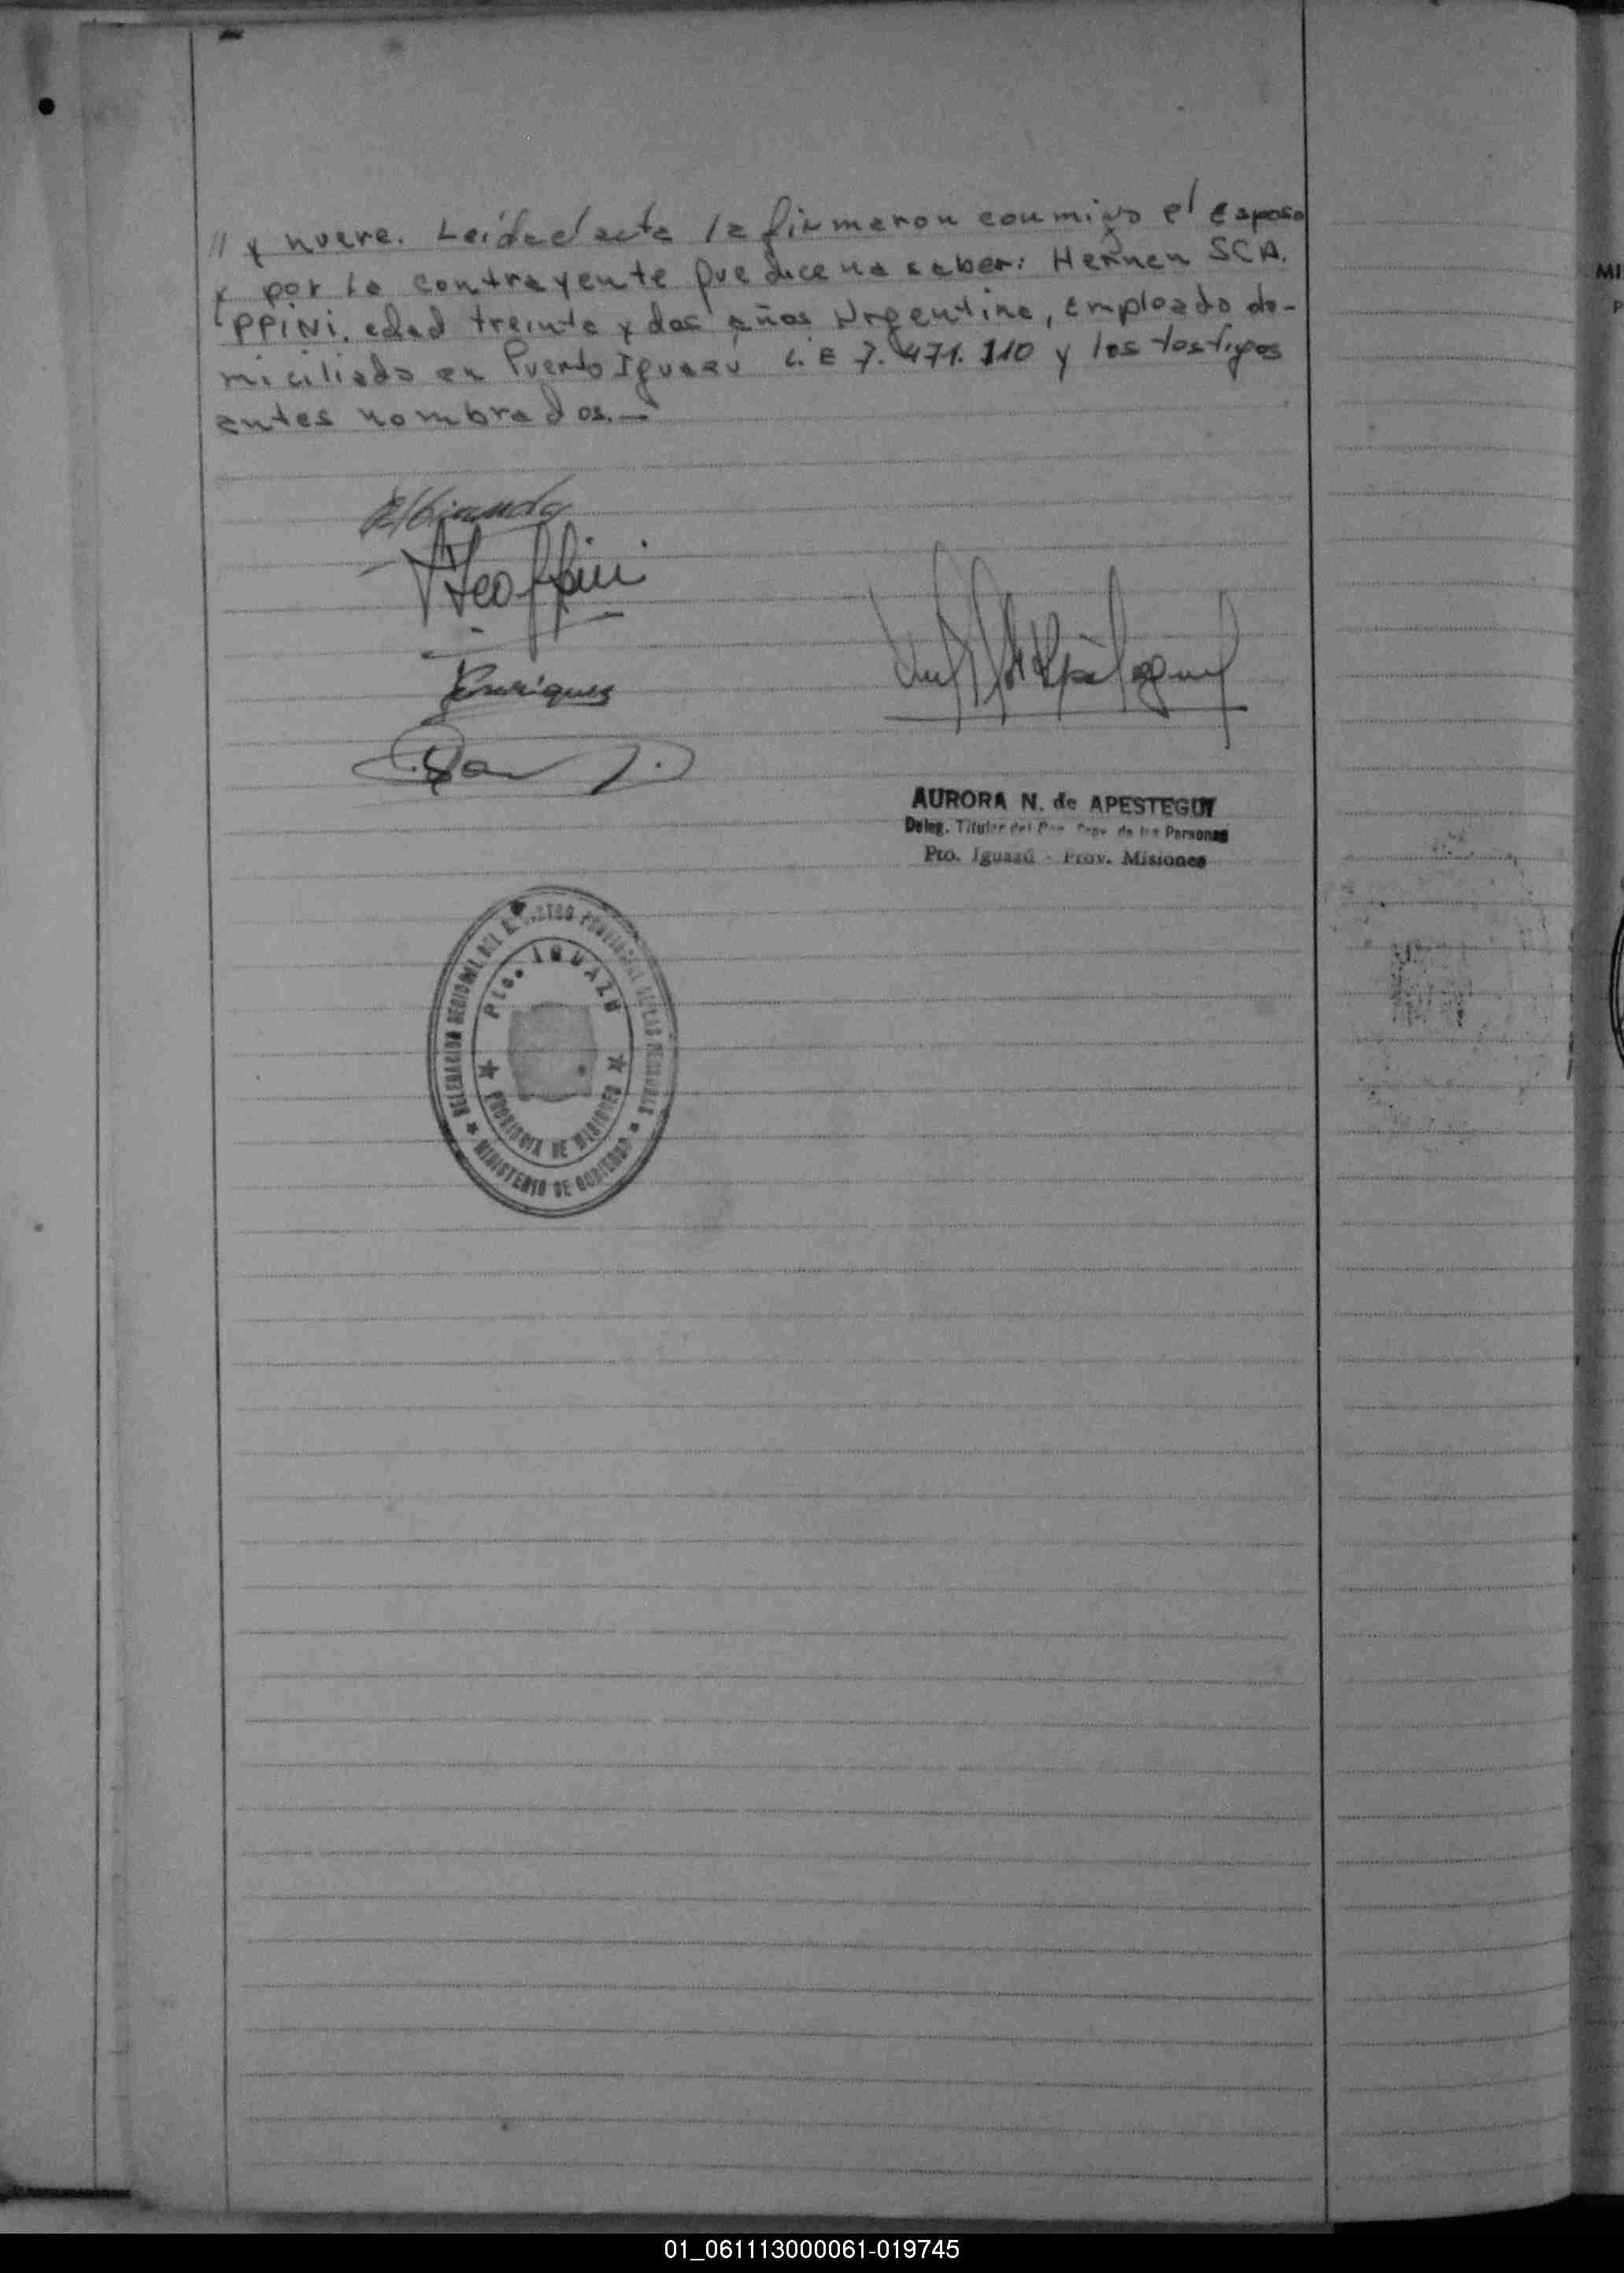 // y nueve. Leída el acta la firmaron conmigo el esposo
y por la contrayente que dice no saber: Hernen SCA.
PPiNi. edad treinta y dos años Argentino, Empleado do-
miciliado en Puerto Iguazú L.E 7.471.110 y los testigos
antes nombrados.—
Enriquez
AURORA N. de APESTEGUY
Deleg. Titular del de las Personas
Pto. Iguazú - Prov. Misiones
DELEGACION REGIONAL DEL REGISTRO PROVINCIAL DE LAS PERSONAS
Pto. IGUAZU
PROVINCIA DE MISIONES
MINISTERIO DE GOBIERNO
MI
P
01_061113000061-019745